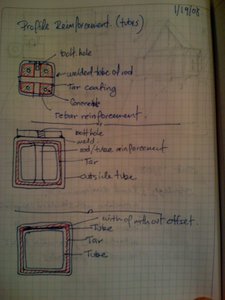 Profile Reinforcement (tubes)
1/19/08
bolt hole
welded tube of rod
Tar coating
Concrete
rebar reinforcement
bolt hole
weld
rod/tube reinforcement
Tar
outside tube
with of without offset.
Tube
Tar
Tube